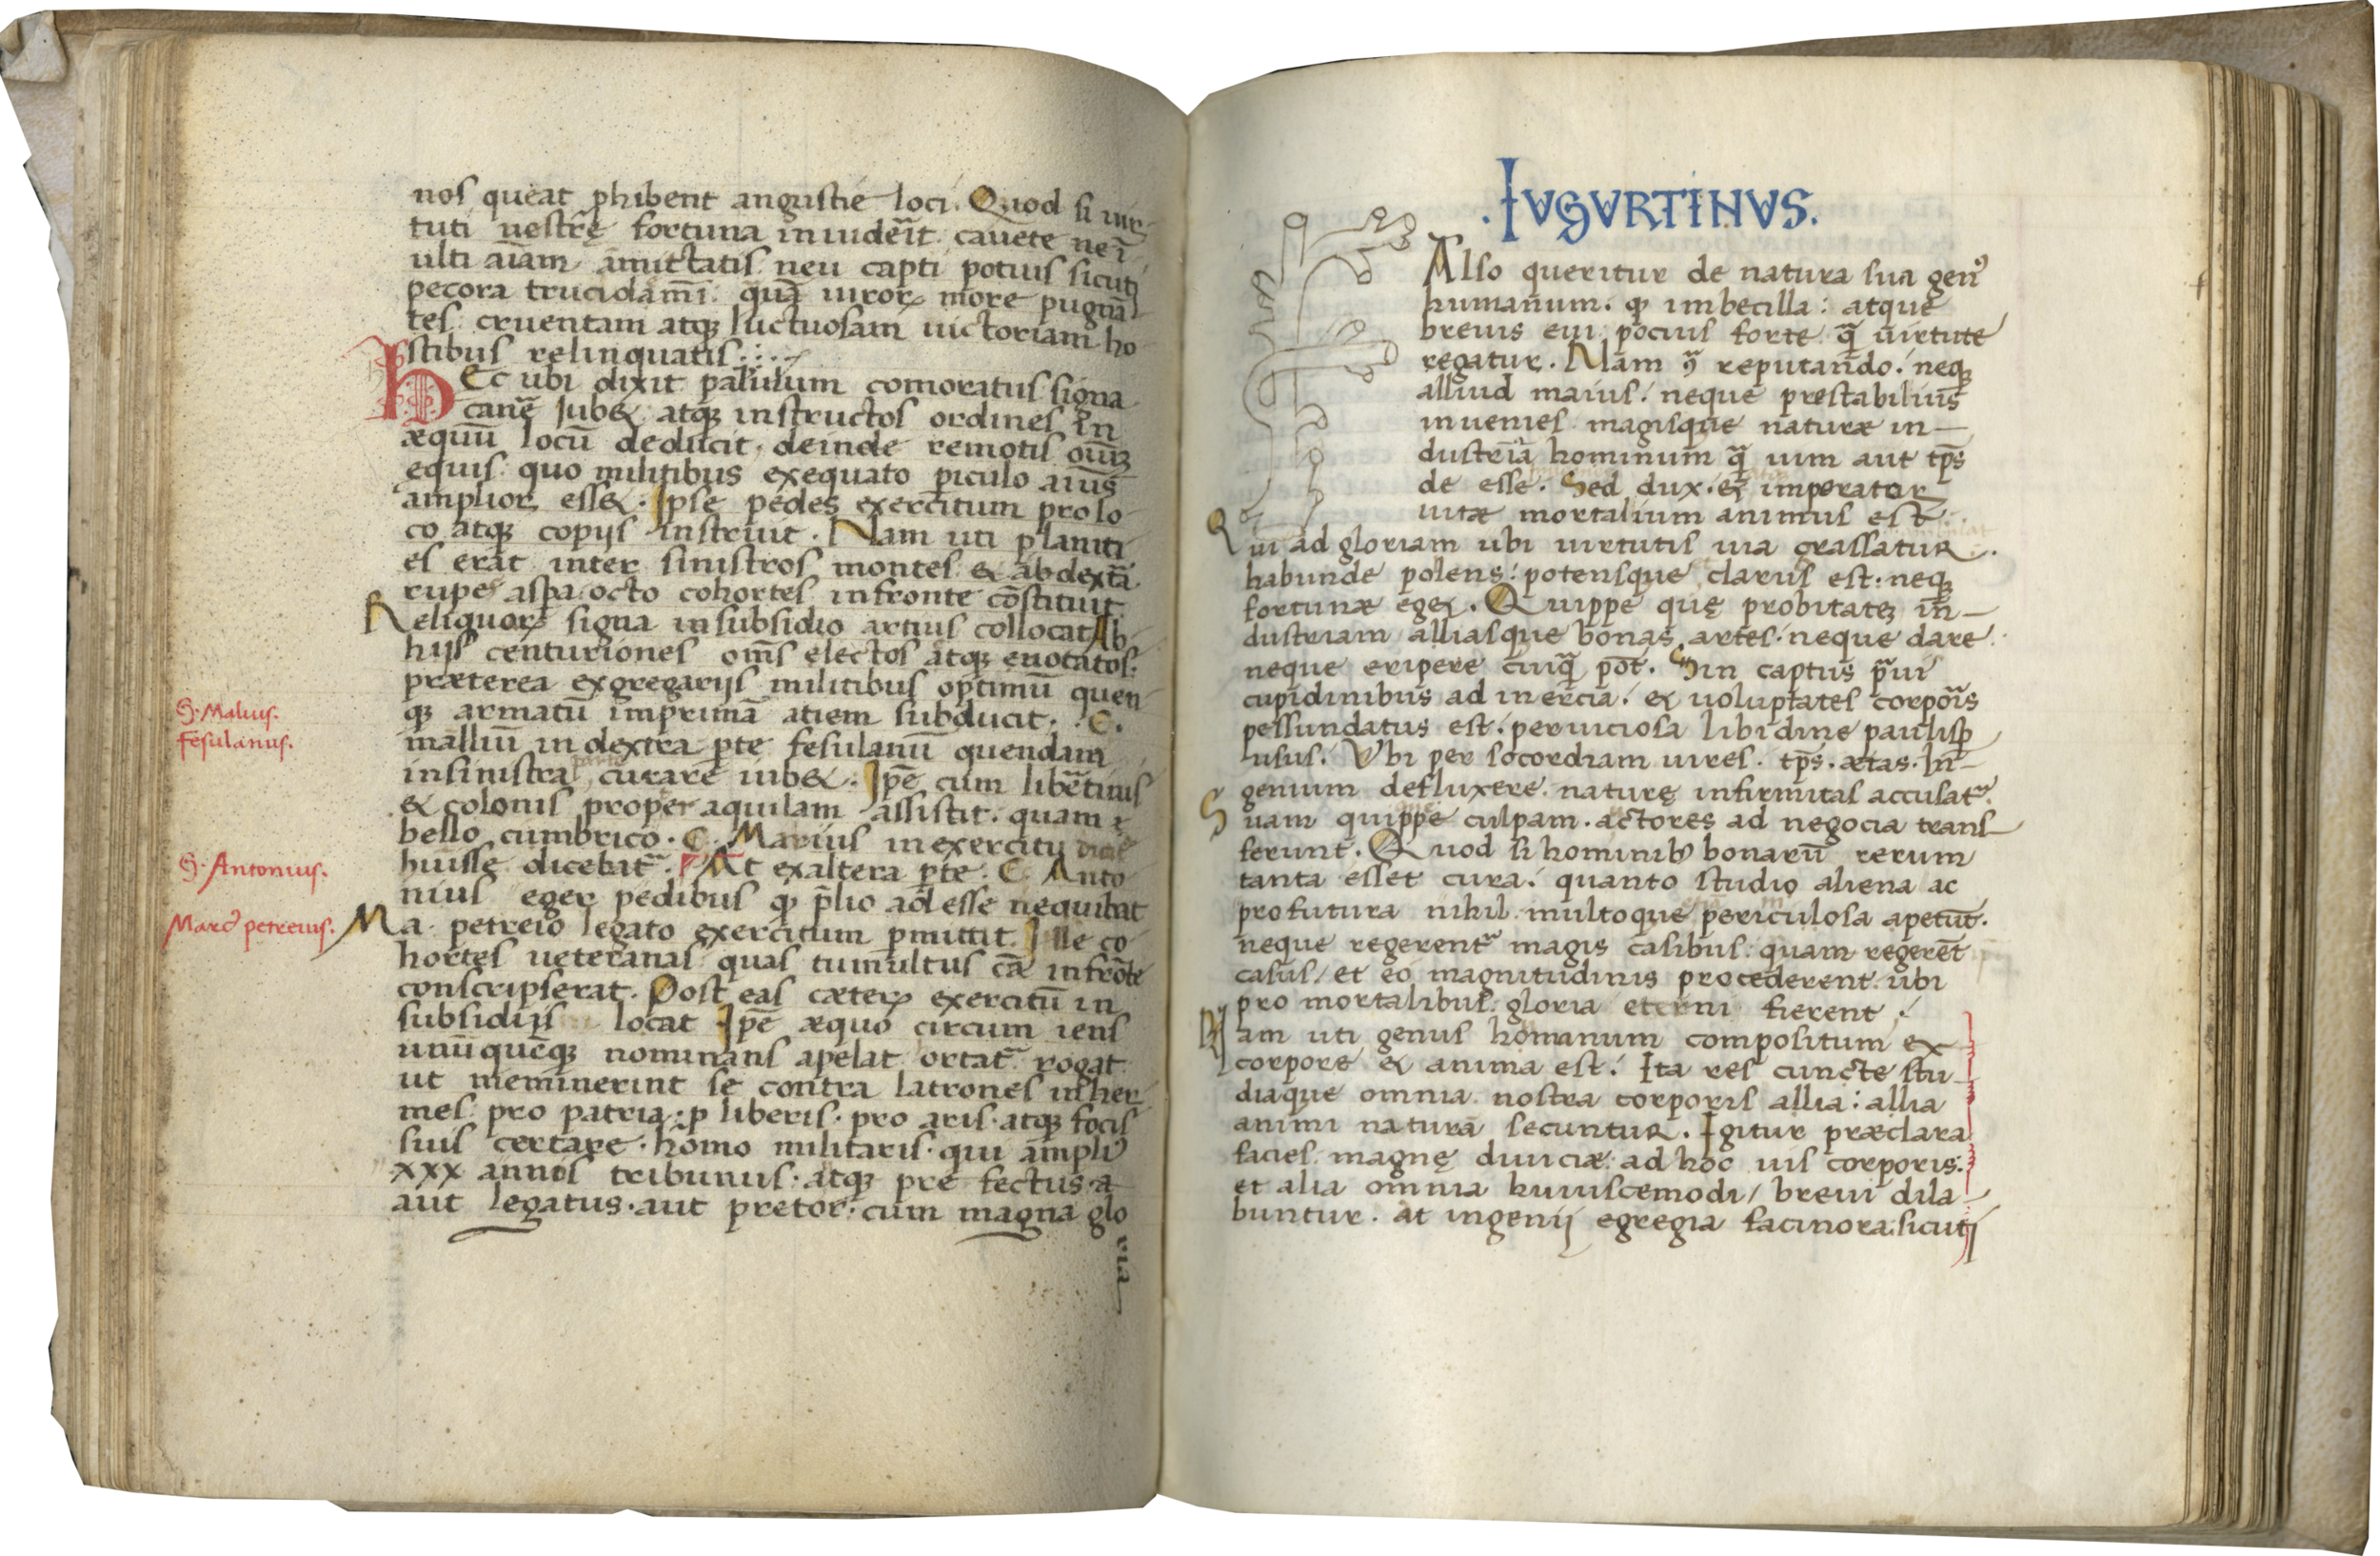 nos queat ꝓhibent angustie loci. Quod si uir-
tuti uestrę fortuna inuiderit cauete ne ī-
ulti aīam amictatis neu capti potius sicuti
pecora trucidamī quā uiroꝝ more pugnā
tes cruentam atqꝫ luctuosam uictoriam ho
stibus relinquatis
HEc ubi dixit palulum comoratus signa
canē Iubet atqꝫ instructos ordines in
æquū locū deducit. deinde remotis oum̄
equis quo militibus exequato piculo aius̄
amplior esset. Ipse pedes exercitum pro lo
co atqꝫ copijs instruit. Nam uti planiti
es erat inter sinistros montes & ab dextā
rupe aspa octo cohortes infronte cōstituit
Reliquoꝝ signa insubsidio artius collocat Ab
hijs centuriones om̄s electos atqꝫ euotatos:
præterea exgregarijs militibus optimū quen-
qꝫ armatū inprimā atiem subducit. C.
malliū in dextra ꝑte fesulanū quendam
insinistra parte curare iubet. Ipē cum libertinis
& colonis proper aquilam assistit. quam
bello cumbrico. C. Marius in exercitu
huisse dicebat̄. At exaltera ꝑte. C. Anto
nius eger pedibus qꝫ p̄lio adesse nequibat
Ma. petreio legato exercitum ꝑmittit. Ille co
hortes ueteranas quas tumultus cā infrōte
conscripserat. Post eas cæteꝝ exercitū in
subsidijs locat Ipē æquo circum iens
unūquēqꝫ nominans apelat ortat̄ rogat
ut meminerint se contra latrones inher
mes pro patria: ꝓ liberis. pro aris. atqꝫ focis
suis certare. homo militaris. qui ampliꝰ
xxx annos tribunus. atqꝫ prefectus. a
aut legatus. aut pretor: cum magna glo
ria
S. Malius.
Fesulanus.
S. Antonius.
Marcꝰ petreius.
.IUGURTINUS.
Also queritur de natura sua genꝰ
humanum. qꝫ imbecilla: atque
breuis eui pocius forte quā uirtute
regatur. Nam 9ͣ reputando. neqꝫ
alliud maius. neque prestabilius
inuenies magisque naturæ in-
dustriā hominum quā uim aut tp̄s
de esse. Sed dux. & imperator
uitæ mortalium animus est.
Qui ad gloriam ubi uirtutis uia grassatur.
habunde polens: potensque clarus est. neqꝫ
fortunæ eget. Quippe quę probitateꝫ in-
dustriam alliasque bonas artes. neque dare
neque eripere cuiquā pōt. Sin captus praui
cupidinibus ad inercia. & uoluptates corporis
pessundatus est. perniciosa libidine paulisꝑ
usus. Ubi per socordiam uires. tp̄s. ætas. In-
genium defluxere. naturę infirmitas accusat̄.
Suam quippe culpam. actores ad negocia trans-
ferunt. Quod si hominibꝰ bonarū rerum
tanta esset cura. quanto studio aliena ac
profutura nihil. multoque periculosa apetunt.
neque regerent̄ magis casibus: quam regerēt
casus/ et eo magnitudinis procederent. ubi
pro mortalibus gloria eterni fierent.
Nam uti genus homanum compositum ex
corpore & anima est. Ita res cuncte stu-
diaque omnia nostra corporis allia: allia
animi naturā secuntur. Igitur præclara
facies. magnę diuiciæ. ad hoc uis corporis:
et alia omnia huiuscemodi/ breui dila-
buntur. at ingenij egregia facinora. sicutj